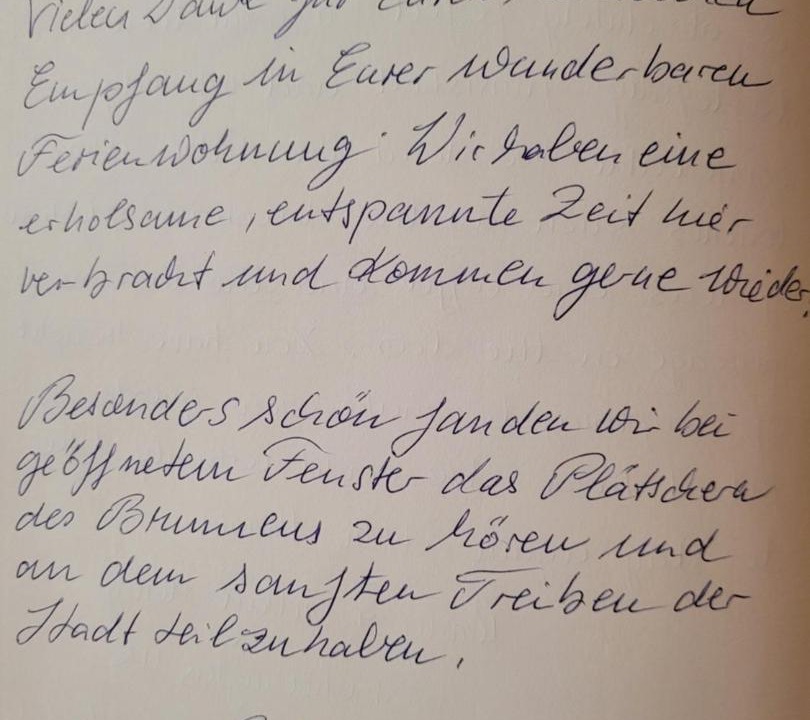 Vielen Dank für
Empfang in Eurer wunderbaren
Ferienwohnung. Wir haben eine
erholsame, entspannte Zeit hier
verbracht und kommen gerne wieder.
Besonders schön fanden wir bei
geöffnetem Fenster das Plätschern
des Brunnens zu hören und
an dem sanften Treiben der
Stadt teilzuhaben.